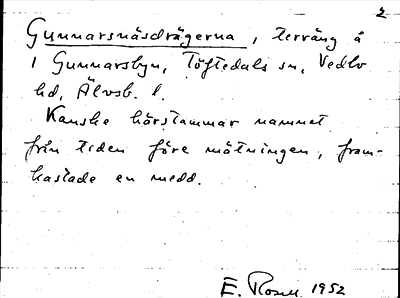 2
Gunnarsnäsdrågerna, terräng å
1 Gunnarsbyn, Töftedals sn, Vedbo
hd, Älvsb. l.
Kanske härstammar namnet
från tiden före mätningen, fram-
kastade en medd.
E. Rosell 1952